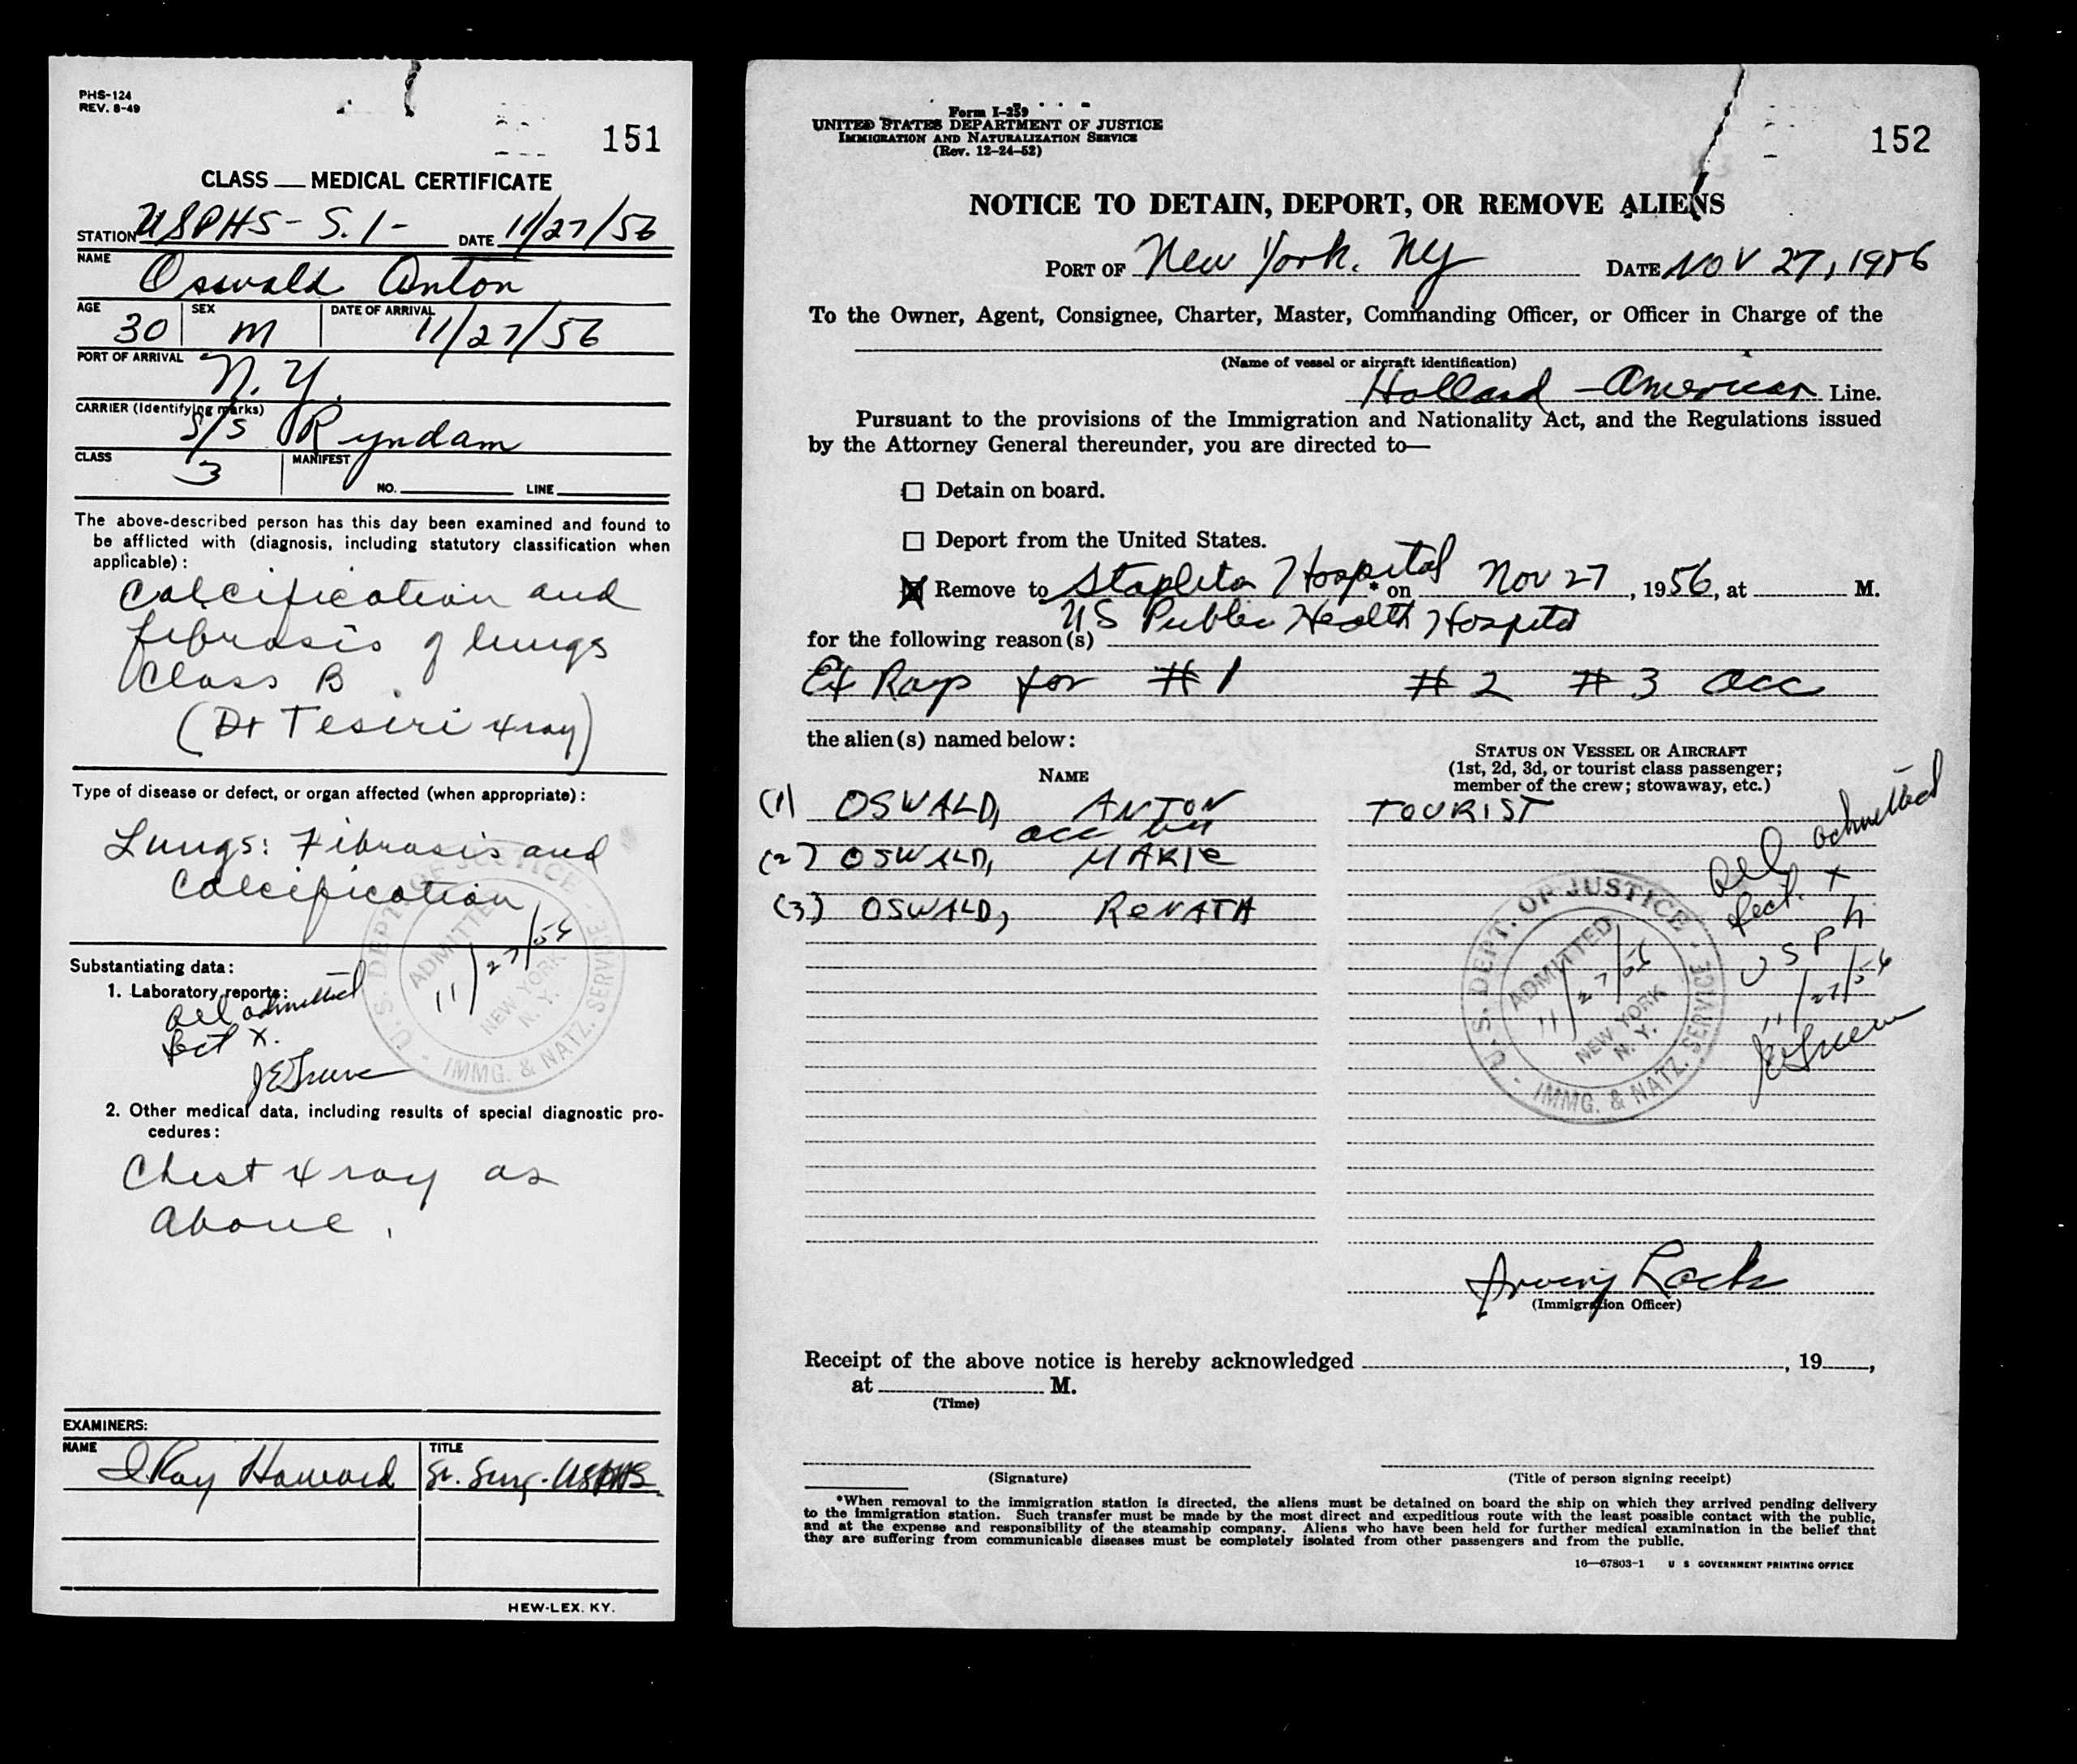 PHS-124
REV. 8-49
151
CLASS ___ MEDICAL CERTIFICATE
STATION USPHS - S.I - DATE 11/27/56
NAME
Oswald Anton
AGE 30 SEX M DATE OF ARRIVAL 11/27/56
PORT OF ARRIVAL N.Y.
CARRIER (Identifying marks)
S/S Ryndam
CLASS 3 MANIFEST
NO. ____ LINE ____
The above-described person has this day been examined and found to
be afflicted with (diagnosis, including statutory classification when
applicable):
Calcification and
fibrosis of lungs
Class B.
(Dr Tesiri xray)
Type of disease or defect, or organ affected (when appropriate):
Lungs: Fibrosis and
Calcification
Substantiating data:
1. Laboratory reports:
All admitted
Sect X.
U.S. DEPT. OF JUSTICE - IMMG. & NATZ. SERVICE -
ADMITTED
11/27/56
NEW YORK
N. Y.
2. Other medical data, including results of special diagnostic pro-
cedures:
Chest xray as
above.
EXAMINERS:
NAME TITLE
Ray Howard Sr. Surg. USPHS
HEW-LEX. KY.
Form I-259
UNITED STATES DEPARTMENT OF JUSTICE
IMMIGRATION AND NATURALIZATION SERVICE
(Rev. 12-24-52)
152
NOTICE TO DETAIN, DEPORT, OR REMOVE ALIENS
PORT OF New York, NY DATE NOV 27, 1956
To the Owner, Agent, Consignee, Charter, Master, Commanding Officer, or Officer in Charge of the
(Name of vessel or aircraft identification)
Holland-American Line.
Pursuant to the provisions of the Immigration and Nationality Act, and the Regulations issued
by the Attorney General thereunder, you are directed to—
☐ Detain on board.
☐ Deport from the United States.
☒ Remove to Stapleton Hospital * on Nov 27, 1956, at ____ M.
US Public Health Hospital
for the following reason(s)
Ex Rays for #1 #2 #3 acc
the alien(s) named below:
NAME
STATUS ON VESSEL OR AIRCRAFT
(1st, 2d, 3d, or tourist class passenger;
member of the crew; stowaway, etc.)
(1) OSWALD, ANTON TOURIST
acc by
(2) OSWALD, MARIE
(3) OSWALD, RENATA
All admitted
Sect. X
USPH
11/27/56
U.S. DEPT. OF JUSTICE - IMMG. & NATZ. SERVICE -
ADMITTED
11/27/56
NEW YORK
N. Y.
Irving
(Immigration Officer)
Receipt of the above notice is hereby acknowledged ____, 19__,
at ____ M.
(Time)
(Signature)
(Title of person signing receipt)
*When removal to the immigration station is directed, the aliens must be detained on board the ship on which they arrived pending delivery
to the immigration station. Such transfer must be made by the most direct and expeditious route with the least possible contact with the public,
and at the expense and responsibility of the steamship company. Aliens who have been held for further medical examination in the belief that
they are suffering from communicable diseases must be completely isolated from other passengers and from the public.
16—67803-1 U S GOVERNMENT PRINTING OFFICE